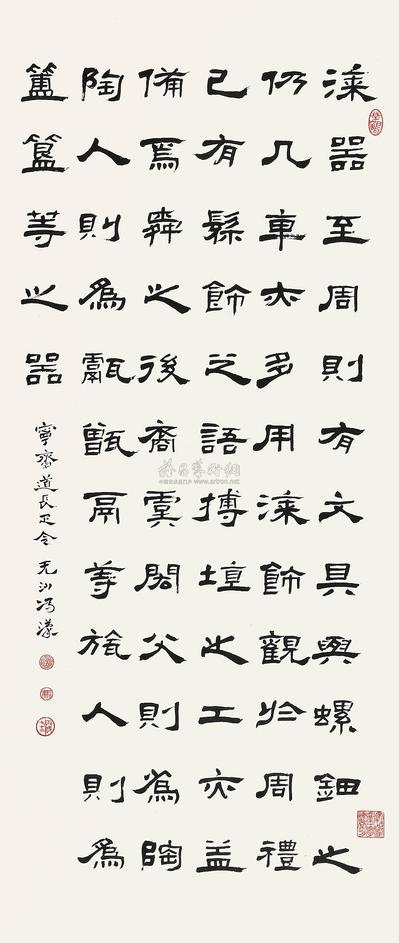 漆器至周則有文具與螺鈿之
仍几車亦多用漆飾觀於周禮
已有髹飾之語搏埴之工亦益
備焉舜之後裔虞閼父則為陶
陶人則為甗甑鬲等旊人則為
簠簋等之器
寧齋道長疋令 无沙馮